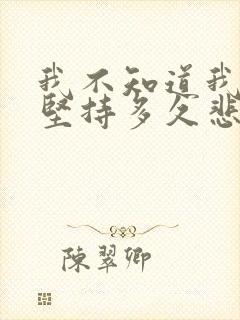 我不知道我
坚持多久悲
陈翠卿